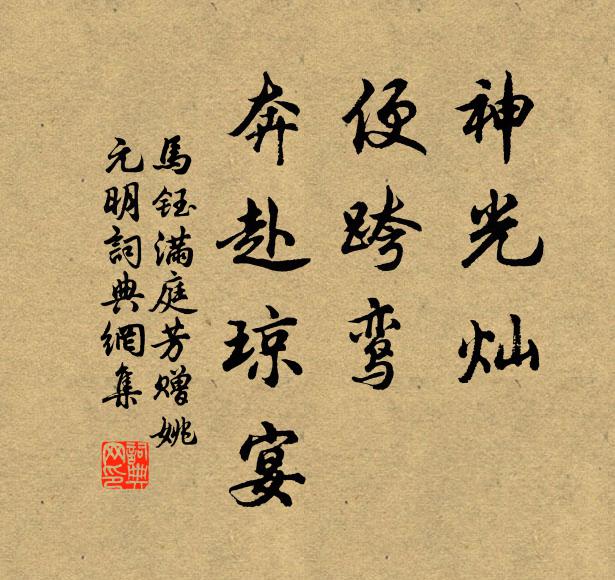 神光灿
便跨鸾
奔赴琼宴
馬鈺满庭芳赠姚
元明詞典網集
詞典
网印